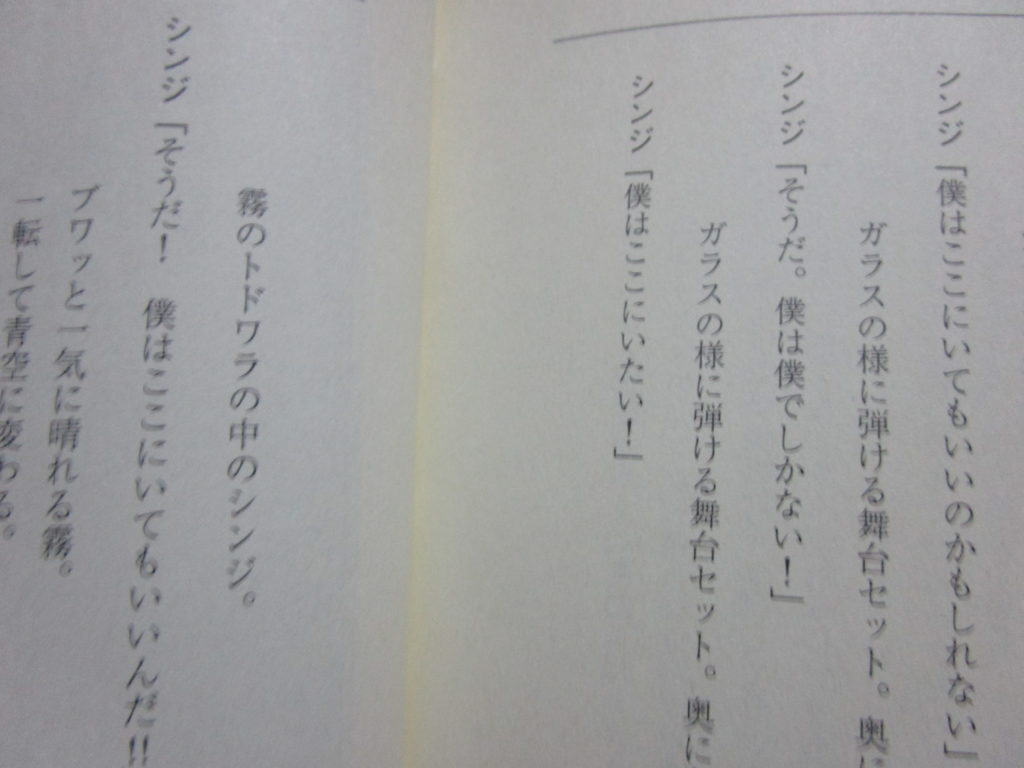 シンジ「僕はここにいてもいいのかもしれない」
ガラスの様に弾ける舞台セット。奥に
シンジ「そうだ。僕は僕でしかない！」
ガラスの様に弾ける舞台セット。奥に
シンジ「僕はここにいたい！」
霧のトドワラの中のシンジ。
シンジ「そうだ！　僕はここにいてもいいんだ!!
ブワッと一気に晴れる霧。
一転して青空に変わる。